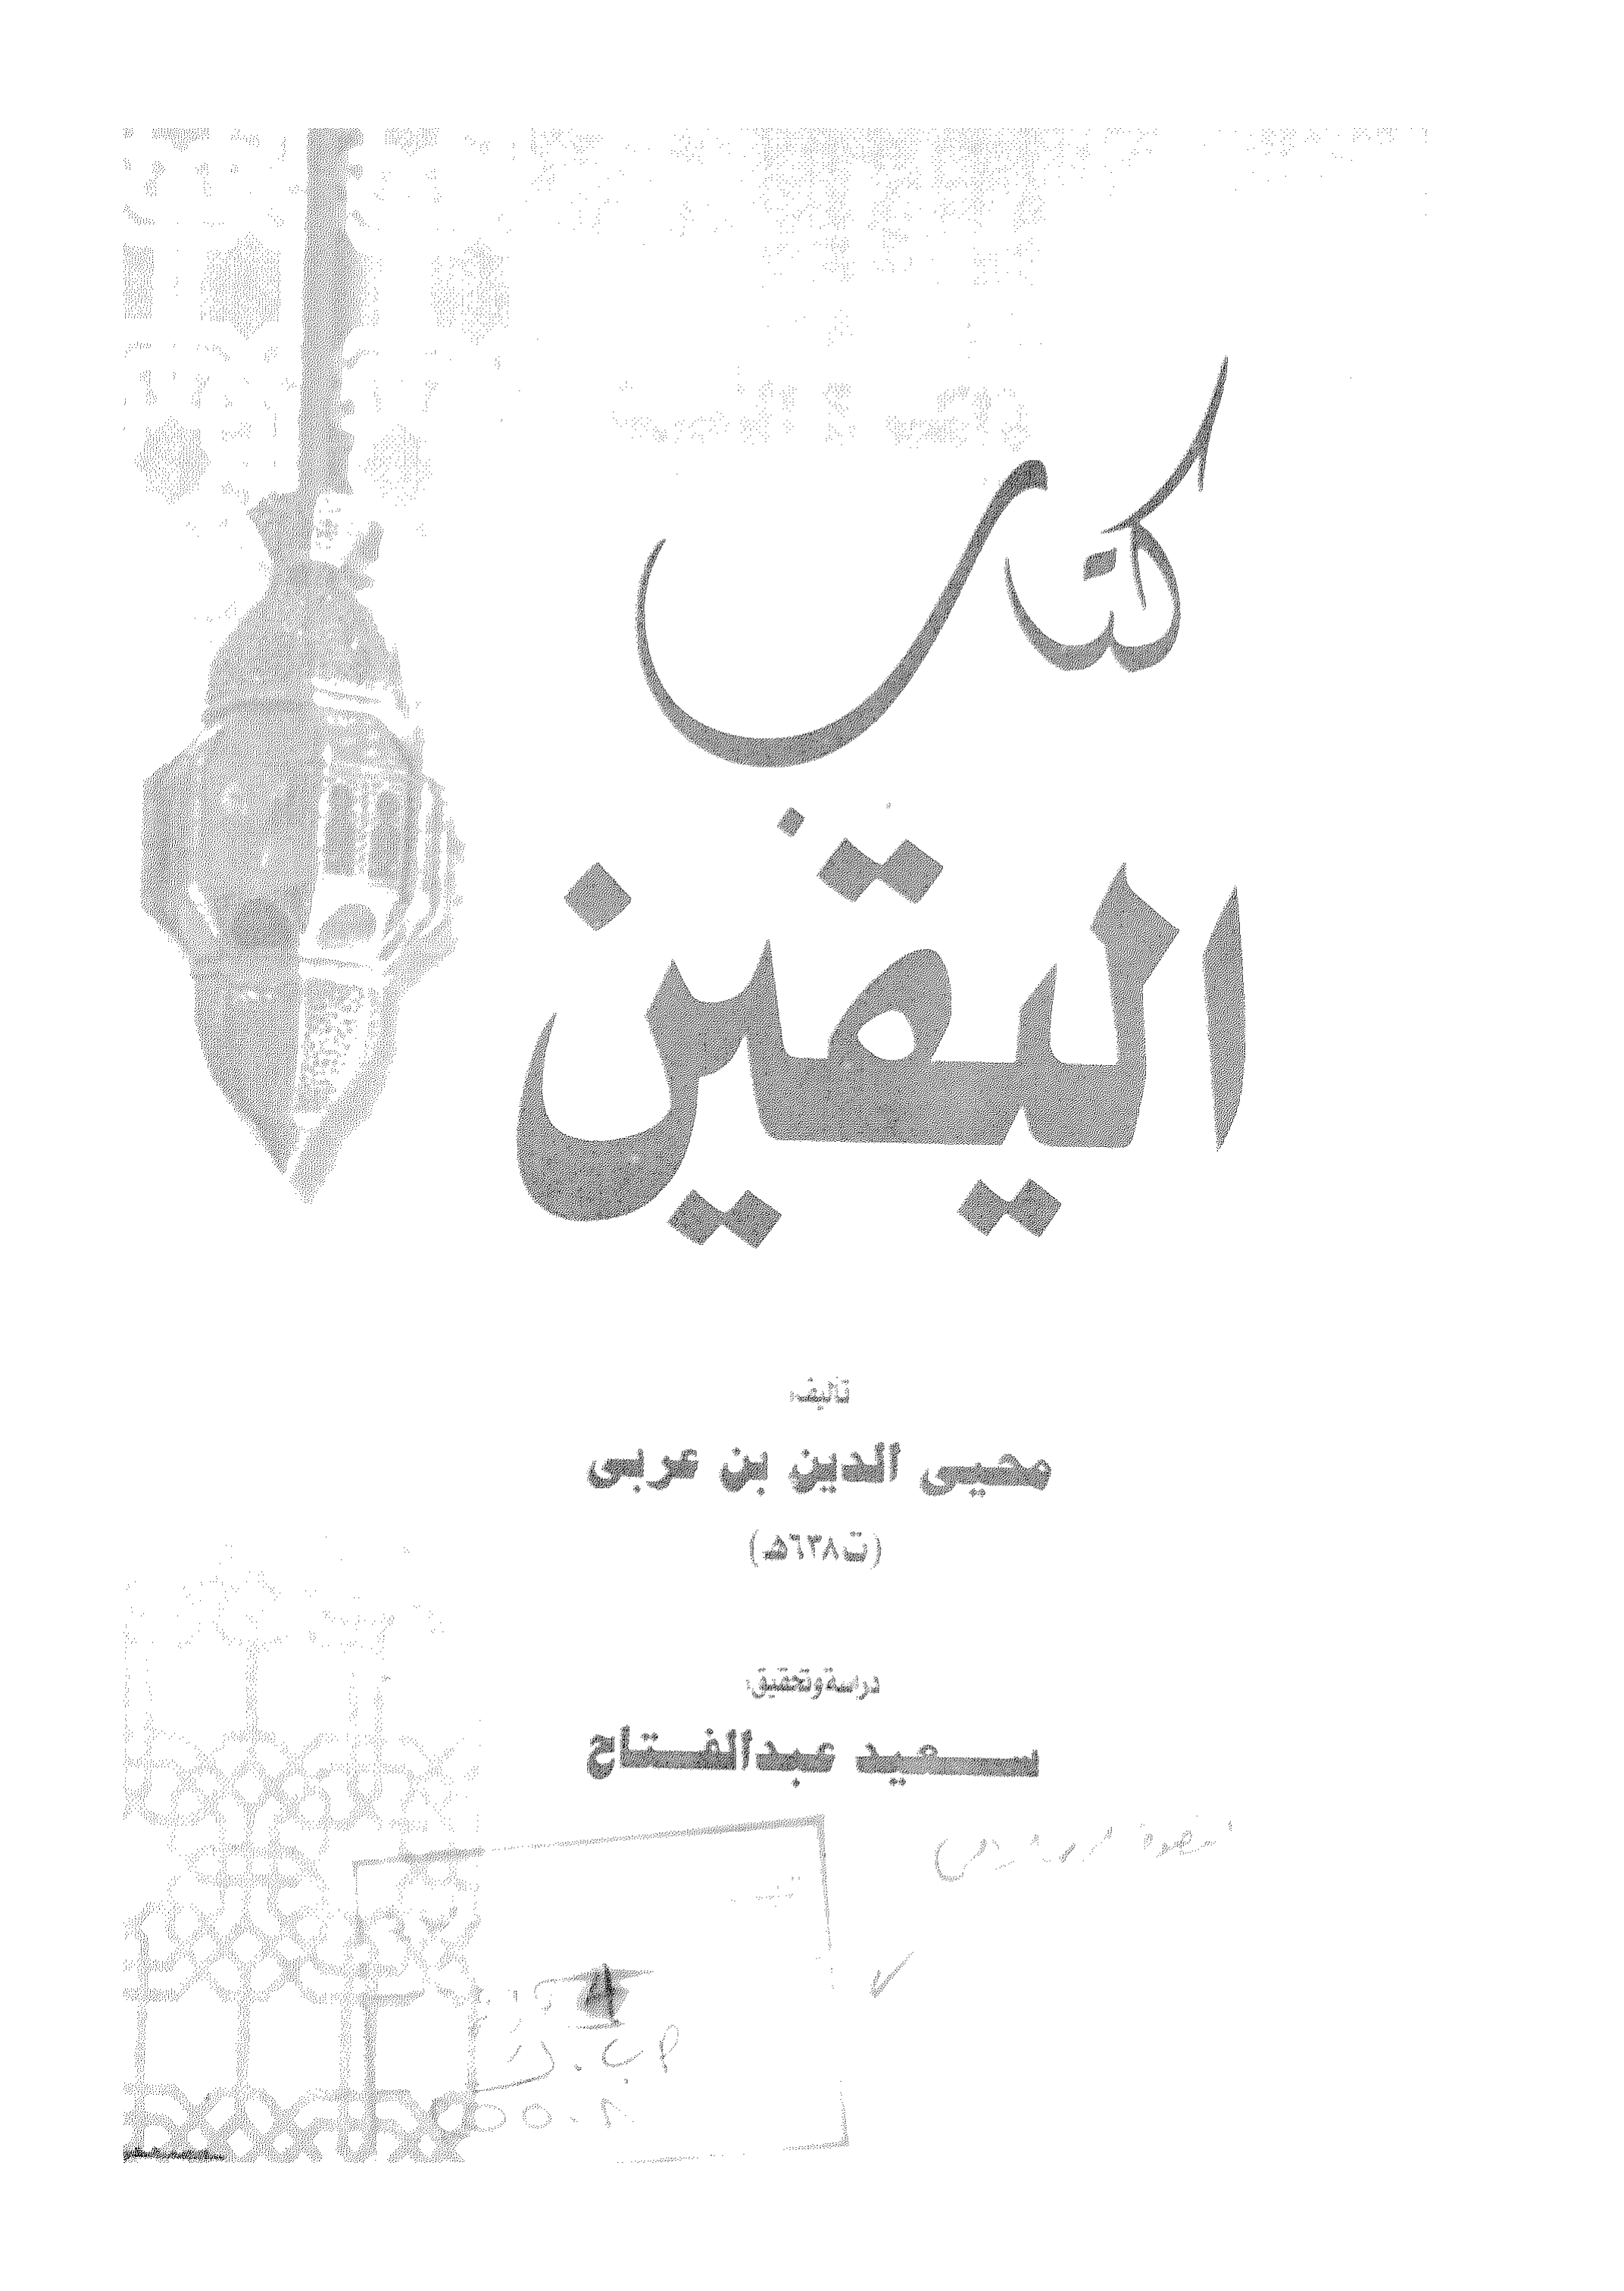 كتاب
اليقين
تأليف:
محيى الدين بن عربى
(ت٦٣٨هـ)
دراسة وتحقيق:
سعيد عبدالفتاح